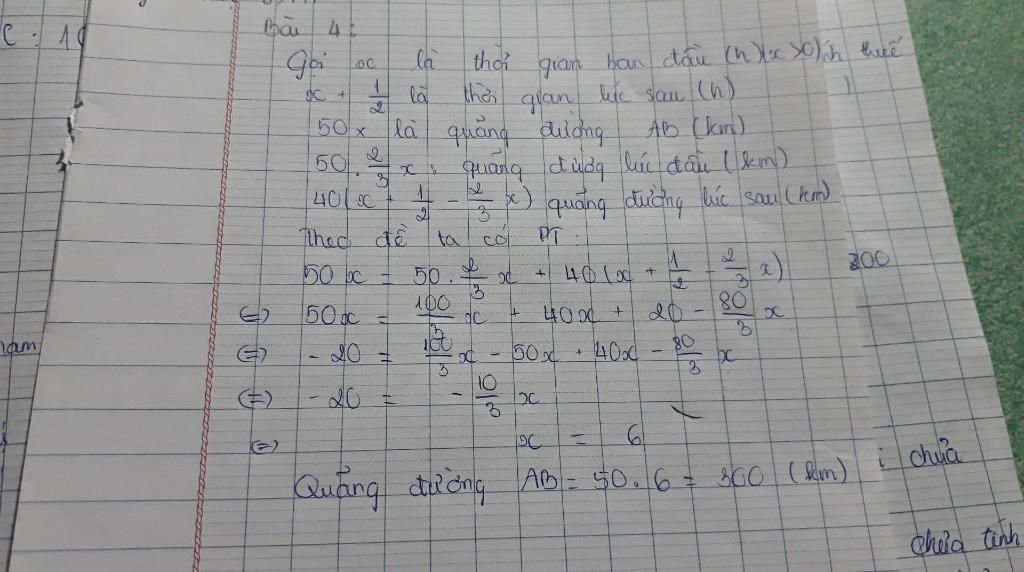 C: 10
Bài 4:
Gọi x là thời gian ban đầu (h) (x > 0)
x + 1/2 là thời gian lúc sau (h)
50x là quãng đường AB (km)
50 . 2/3 x : quãng đườg lúc đầu (km)
40(x + 1/2 - 2/3 x) quãng đường lúc sau (km)
Theo đề ta có PT:
50x = 50 . 2/3 x + 40(x + 1/2 - 2/3 x) 300
<=> 50x = 100/3 x + 40x + 20 - 80/3 x
<=> -20 = 100/3 x - 50x + 40x - 80/3 x
nam
<=> -20 = - 10/3 x
<=> x = 6
Quảng đường AB = 50 . 6 = 300 (km)
chửa
chửa tính